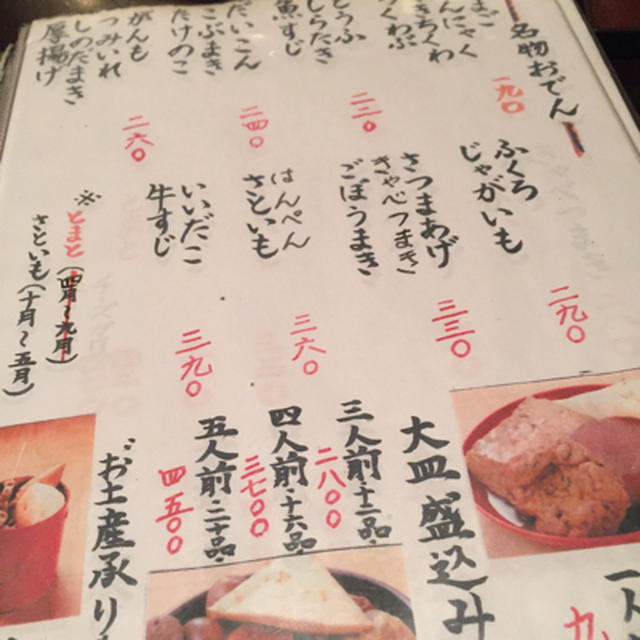 名物おでん
一九〇
ちくわぶ
とうふ
しらたき
魚すじ
二二〇
だいこん
こぶまき
たけのこ
二四〇
がんも
つみいれ
しのだまき
厚揚げ
二六〇
ふくろ
じゃがいも
二九〇
さつまあげ
きゃべつまき
ごぼうまき
三三〇
はんぺん
さといも
三六〇
いいだこ
牛すじ
三九〇
※とまと(四月〜九月)
さといも(十月〜五月)
大皿盛込み
三人前・十二品
二八〇〇
四人前・十六品
三七〇〇
五人前・二十品
四五〇〇
お土産承り